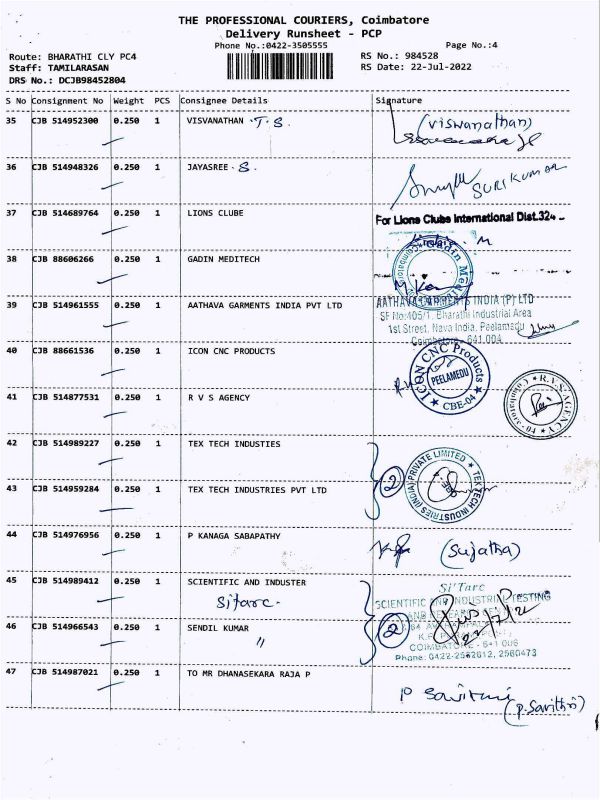 THE PROFESSIONAL COURIERS, Coimbatore
Delivery Runsheet - PCP
Phone No.:0422-3505555
Page No.:4
Route: BHARATHI CLY PC4
RS No.: 984528
Staff: TAMILARASAN
RS Date: 22-Jul-2022
DRS No.: DCJB98452804
S No Consignment No Weight PCS Consignee Details Signature
35 CJB 514952300 0.250 1 VISVANATHAN T.S. (viswanathan)
36 CJB 514948326 0.250 1 JAYASREE S. SURIKUMAR
37 CJB 514689764 0.250 1 LIONS CLUBE
For Lions Clubs International Dist.324
38 CJB 88606266 0.250 1 GADIN MEDITECH
39 CJB 514961555 0.250 1 AATHAVA GARMENTS INDIA PVT LTD
AATHAVA GARMENTS INDIA (P) LTD
SF No:405/1, Bharathi Industrial Area
1st Street, Nava India, Peelamedu
Coimbatore - 641 004
40 CJB 88661536 0.250 1 ICON CNC PRODUCTS
ICON CNC Products
PEELAMEDU
CBE-04
41 CJB 514877531 0.250 1 R V S AGENCY
R.V.S AGENCY
42 CJB 514989227 0.250 1 TEX TECH INDUSTIES
2
TEX TECH INDUSTRIES (INDIA) PRIVATE LIMITED
43 CJB 514959284 0.250 1 TEX TECH INDUSTRIES PVT LTD
44 CJB 514976956 0.250 1 P KANAGA SABAPATHY (Sujatha)
45 CJB 514989412 0.250 1 SCIENTIFIC AND INDUSTER
Sitarc.
Si'Tarc
SCIENTIFIC AND INDUSTRIAL TESTING
2
22/7/22
46 CJB 514966543 0.250 1 SENDIL KUMAR
"
COIMBATORE - 641 006
Phone: 0422-2562612, 2560473
47 CJB 514987021 0.250 1 TO MR DHANASEKARA RAJA P
P Savithri
(P. Savithri)